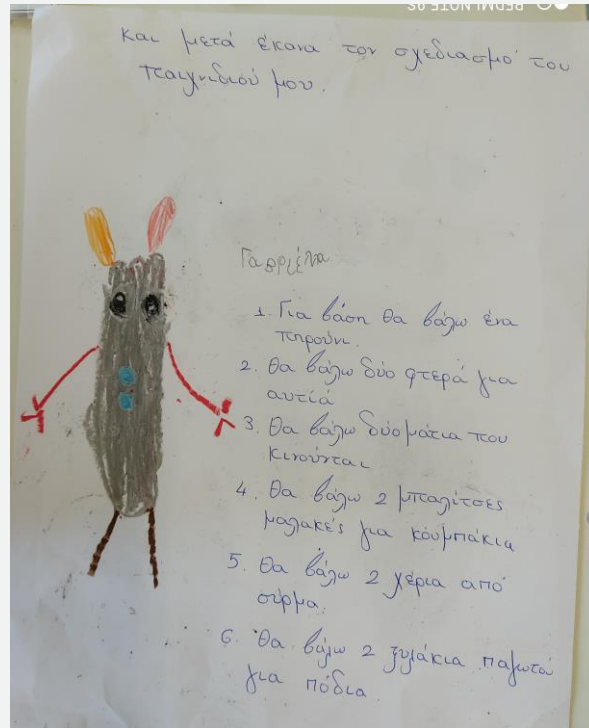 REDMI NOTE 9S
και μετά έκανα τον σχεδιασμό του
παιχνιδιού μου.
Γαβριέλα
1. Για βάση θα βάλω ένα
πηρούνι.
2. Θα βάλω δύο φτερά για
αυτιά
3. Θα βάλω δύο μάτια που
κινούνται
4. Θα βάλω 2 μπαλίτσες
μαλακές για κουμπάκια
5. Θα βάλω 2 χέρια από
σύρμα.
6. Θα βάλω 2 ξυλάκια παγωτού
για πόδια